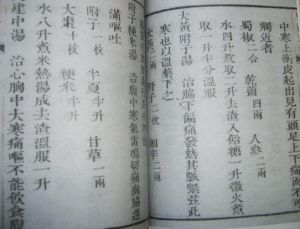 中寒上衝皮起出見有頭足上下痛而
觸近者
蜀椒二合 乾薑四兩 人參二兩
水四升煮取二升去渣入飴糖一升微火煎
取一升半分溫服
大黃附子湯 治脇下偏痛發熱其脈緊弦此
寒也以溫藥下之
附子粳米湯 治腹中寒氣雷鳴切痛胸脇逆
滿嘔吐
附子一枚 半夏半升 甘草一兩
大棗十枚 粳米半升
水八升煮米熟湯成去渣溫服一升
建中湯 治心胸中大寒痛嘔不能飲食腹